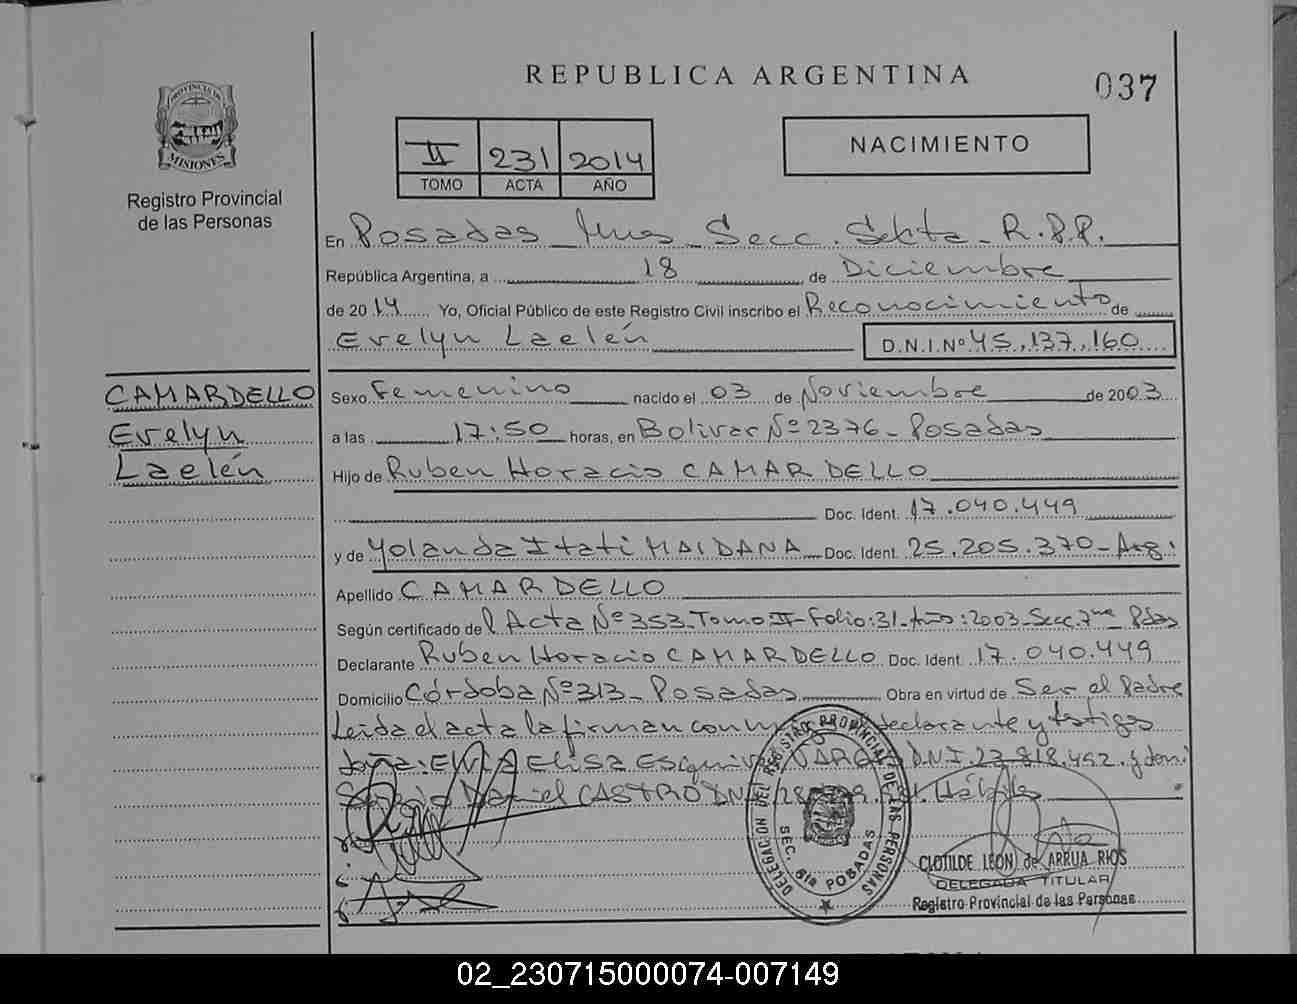 REPUBLICA ARGENTINA
037
PROVINCIA DE
MISIONES
Registro Provincial
de las Personas
II 231 2014
TOMO ACTA AÑO
NACIMIENTO
En Posadas Mnes Secc. Sexta R.P.P.
República Argentina, a 18 de Diciembre
de 2014 Yo, Oficial Público de este Registro Civil inscribo el Reconocimiento de
Evelyn Laelén D.N.I.Nº 45.137.160
CAMARDELLO
Evelyn
Laelén
Sexo Femenino nacido el 03 de Noviembre de 2003
a las 17:50 horas, en Bolivar Nº 2376 - Posadas
Hijo de Ruben Horacio CAMARDELLO
Doc. Ident. 17.040.449
y de Yolanda Itati MAIDANA Doc. Ident. 25.205.370 - Arg.
Apellido CAMARDELLO
Según certificado del Acta Nº 353-Tomo II-Folio:31-Año:2003-Secc.7ma Pdas
Declarante Ruben Horacio CAMARDELLO Doc. Ident. 17.040.449
Domicilio Córdoba Nº 313 - Posadas Obra en virtud de Ser el Padre
Leida el acta la firman conmigo declarante y testigos
doña: Elisa VARGA DNI 23.818.492 y don:
Daniel CASTRO DNI 28 Hábiles
DELEGACION DEL REGISTRO PROVINCIAL DE LAS PERSONAS
SEC. 6ta POSADAS
CLOTILDE LEON de ARRUA RIOS
DELEGADA TITULAR
Registro Provincial de las Personas
02_230715000074-007149